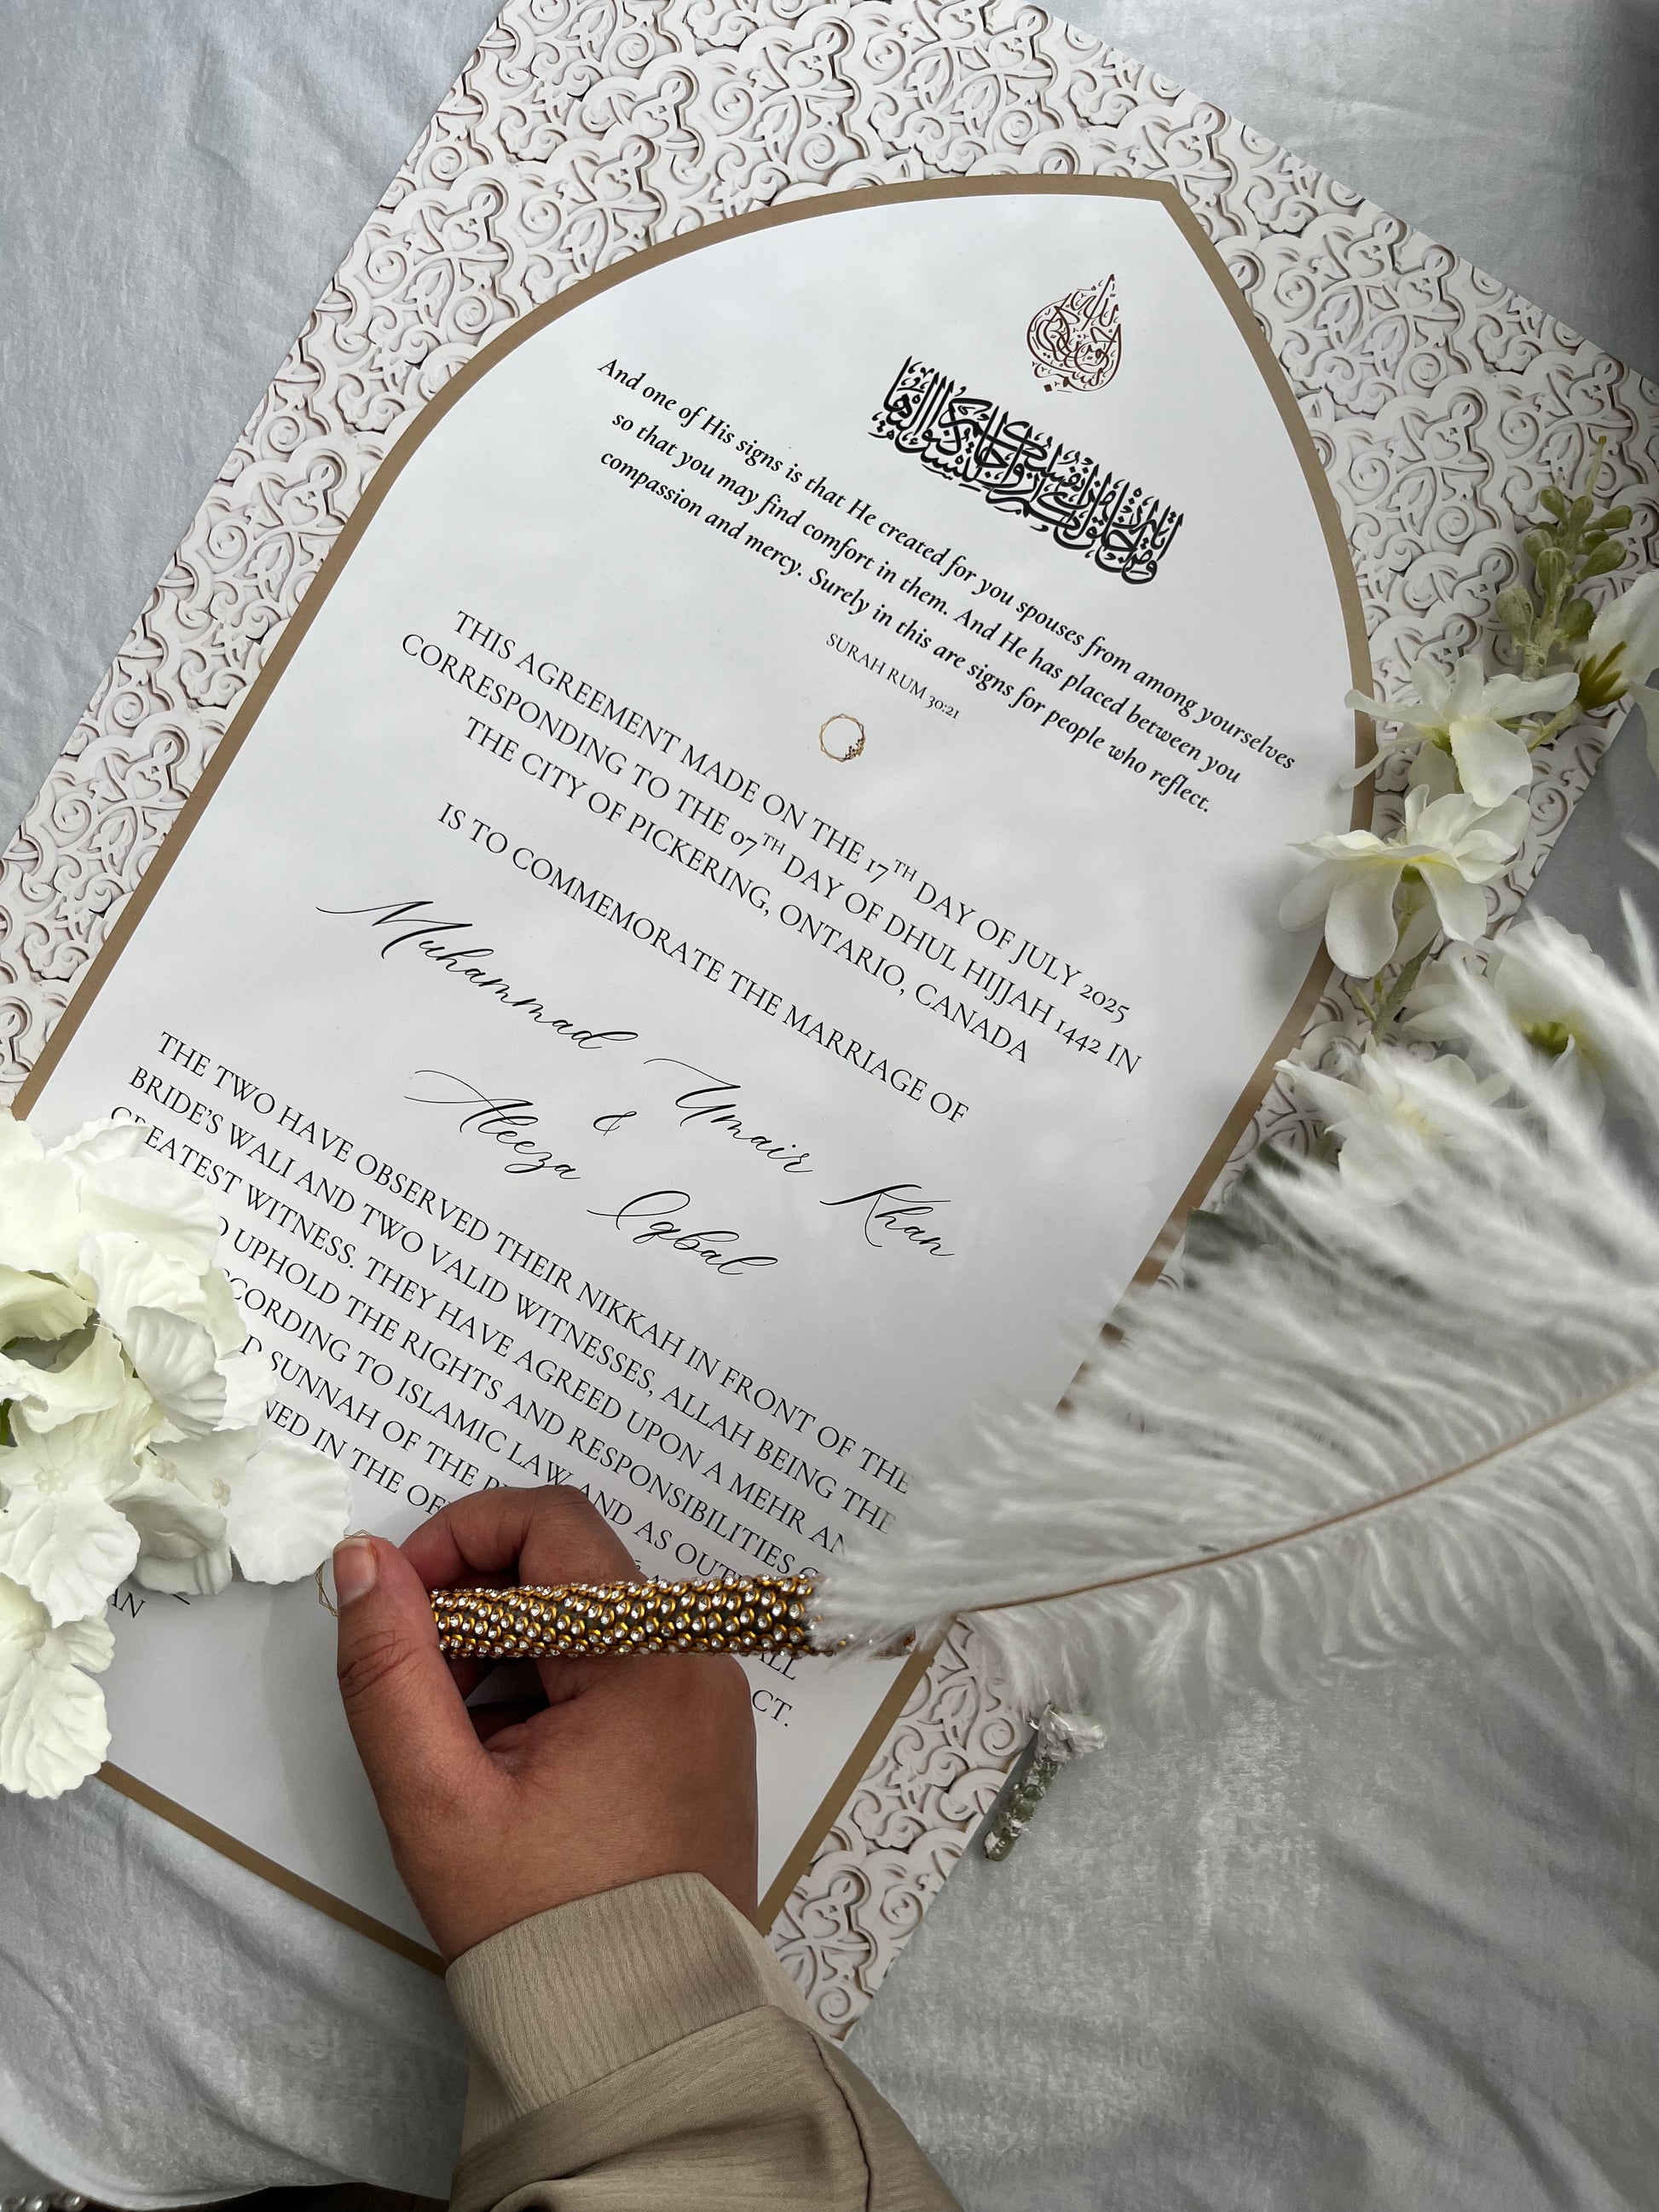 ومن آياته أن خلق لكم من أنفسكم أزواجا لتسكنوا إليها
And one of His signs is that He created for you spouses from among yourselves
so that you may find comfort in them. And He has placed between you
compassion and mercy. Surely in this are signs for people who reflect.
SURAH RUM 30:21
THIS AGREEMENT MADE ON THE 17TH DAY OF JULY 2025
CORRESPONDING TO THE 07TH DAY OF DHUL HIJJAH 1442 IN
THE CITY OF PICKERING, ONTARIO, CANADA
IS TO COMMEMORATE THE MARRIAGE OF
Muhammad Umair Khan
&
Aleeza Iqbal
THE TWO HAVE OBSERVED THEIR NIKKAH IN FRONT OF THE
BRIDE'S WALI AND TWO VALID WITNESSES, ALLAH BEING THE
GREATEST WITNESS. THEY HAVE AGREED UPON A MEHR
UPHOLD THE RIGHTS AND RESPONSIBILITIES
TO ISLAMIC LAW AND AS
SUNNAH OF THE
IN THE